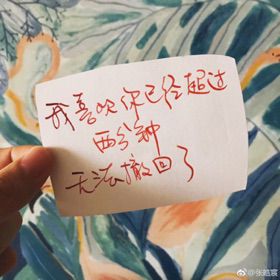 我喜欢你已经超过
两分钟
无法撤回了
@张皓宸